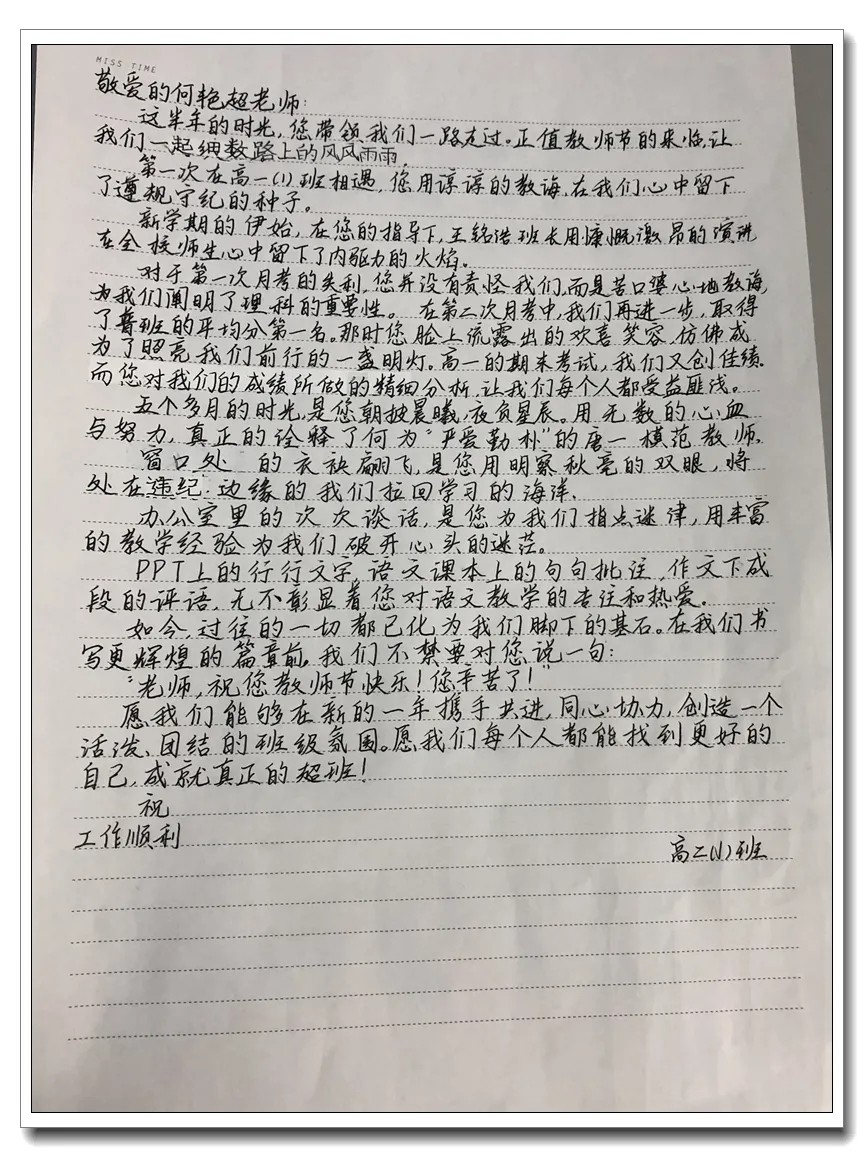 MISS TIME
敬爱的何艳超老师:
这半年的时光,您带领我们一路走过。正值教师节的来临,让
我们一起细数路上的风风雨雨,
第一次在高一(1)班相遇,您用谆谆的教诲,在我们心中留下
了遵规守纪的种子。
新学期的伊始,在您的指导下,王铭浩班长用慷慨激昂的演讲
在全校师生心中留下了内驱力的火焰。
对于第一次月考的失利,您并没有责怪我们,而是苦口婆心地教诲,
为我们阐明了理科的重要性。在第二次月考中,我们再进一步,取得
了普班的平均分第一名。那时您脸上流露出的欢喜笑容,仿佛成
为了照亮我们前行的一盏明灯。高一的期末考试,我们又创佳绩.
而您对我们的成绩所做的精细分析,让我们每个人都受益匪浅。
五个多月的时光,是您朝披晨曦,夜负星辰。用无数的心血
与努力,真正的诠释了何为“严爱勤朴”的唐一模范教师.
窗口处 的衣袂翩飞,是您用明察秋毫的双眼,将
处在违纪边缘的我们拉回学习的海洋.
办公室里的次次谈话,是您为我们指点迷津,用丰富
的教学经验为我们破开心头的迷茫。
PPT上的行行文字,语文课本上的句句批注,作文下成
段的评语,无不彰显着您对语文教学的专注和热爱.
如今,过往的一切都已化为我们脚下的基石。在我们书
写更辉煌的篇章前,我们不禁要对您说一句:
“老师,祝您教师节快乐!您辛苦了!”
愿我们能够在新的一年携手共进,同心协力,创造一个
活泼、团结的班级氛围。愿我们每个人都能找到更好的
自己,成就真正的超班!
祝
工作顺利
高二(1)班